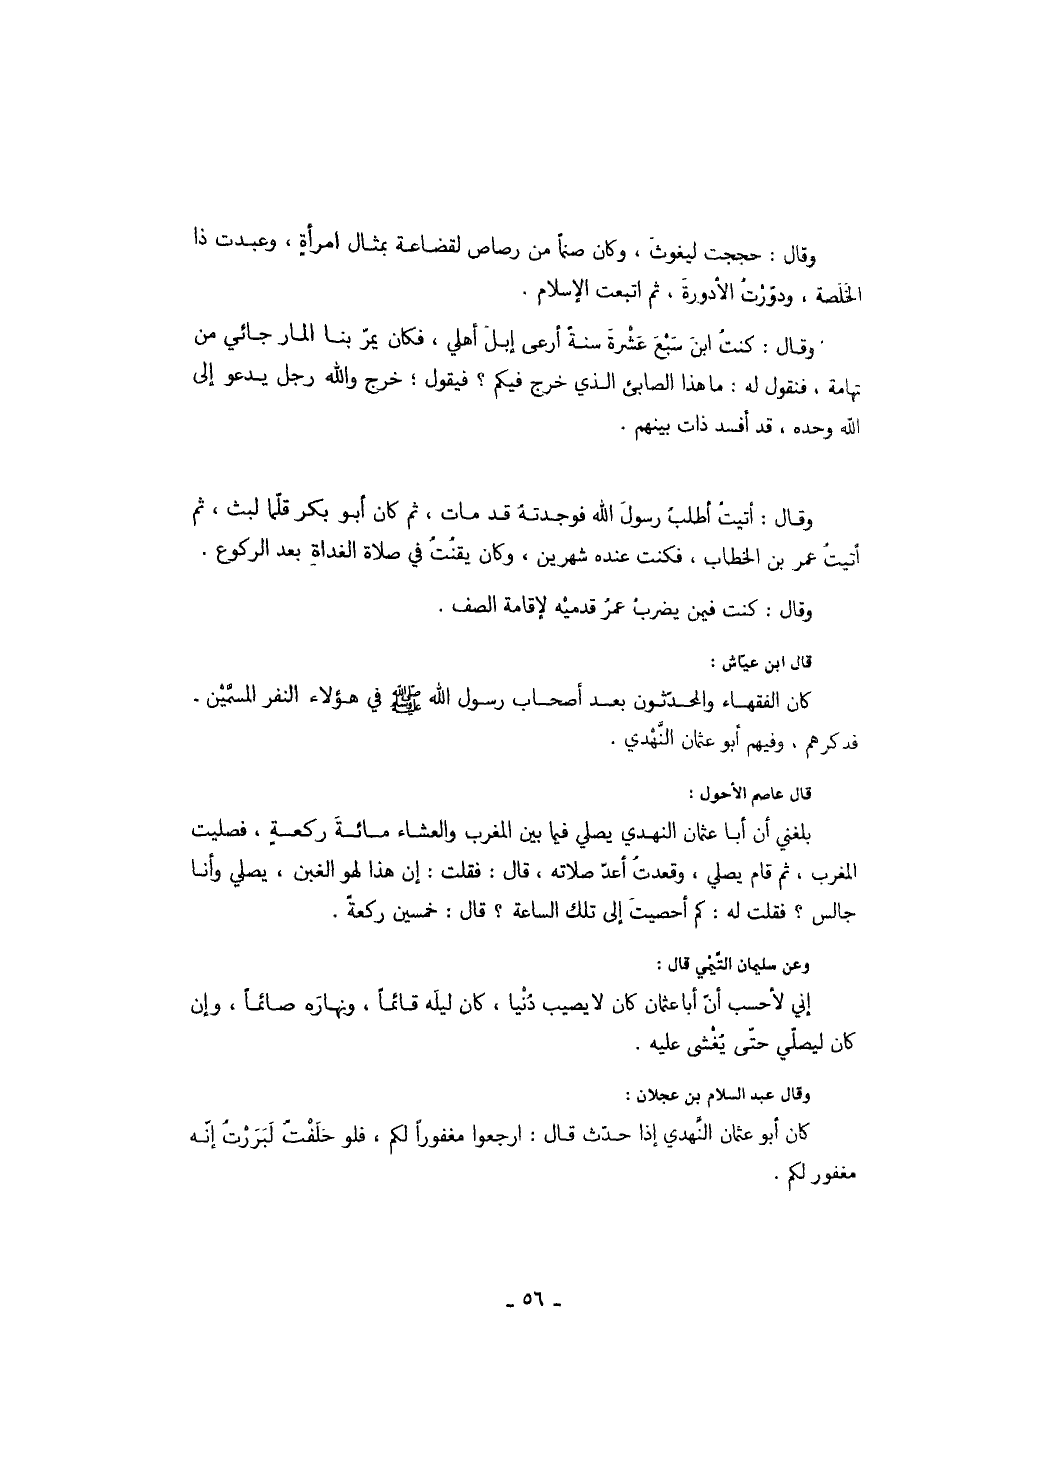 وقال : حججت ليغوثَ ، وكان صنماً من رصاص لقضاعة بمثال امرأةٍ ، وعبدت ذا
الخَلَصة ، ودوّرْتُ الأدورةَ ، ثم اتبعت الإسلام .
وقال : كنتُ ابنَ سَبْعَ عَشْرةَ سنةً أرعى إبلَ أهلي ، فكان يمرّ بنا المار جائي من
تهامة ، فنقول له : ما هذا الصابئ الذي خرج فيكم ؟ فيقول ؛ خرج والله رجل يدعو إلى
الله وحده ، قد أفسد ذات بينهم .
وقال : أتيتُ أطلبُ رسولَ الله فوجدتهُ قد مات ، ثم كان أبو بكر قلّما لبث ، ثم
أتيتُ عمر بن الخطاب ، فكنت عنده شهرين ، وكان يقنُتُ في صلاة الغداةِ بعد الركوع .
وقال : كنت فيمن يضربُ عمرُ قدميْه لإقامة الصف .
قال ابن عيّاش :
كان الفقهاء والمحدّثون بعد أصحاب رسول الله ﷺ في هؤلاء النفر المسمَّيْن ـ
فذكرهم ، وفيهم أبو عثمان النَّهْدي .
قال عاصم الأحول :
بلغني أن أبا عثمان النهدي يصلي فيما بين المغرب والعشاء مائةَ ركعةٍ ، فصليت
المغرب ، ثم قام يصلي ، وقعدتُ أعدّ صلاته ، قال : فقلت : إن هذا لهو الغبن ، يصلي وأنا
جالس ؟ فقلت له : كم أحصيتَ إلى تلك الساعة ؟ قال : خمسين ركعةً .
وعن سليمان التَّيْمي قال :
إني لأحسب أنّ أبا عثمان كان لا يصيب دُنْيا ، كان ليلَه قائماً ، ونهارَه صائماً ، وإن
كان ليصلّي حتّى يُغْشى عليه .
وقال عبد السلام بن عجلان :
كان أبو عثمان النَّهدي إذا حدّث قال : ارجعوا مغفوراً لكم ، فلو حَلَفْتُ لَبَرَرْتُ إنّه
مغفور لكم .
ـ ٥٦ ـ